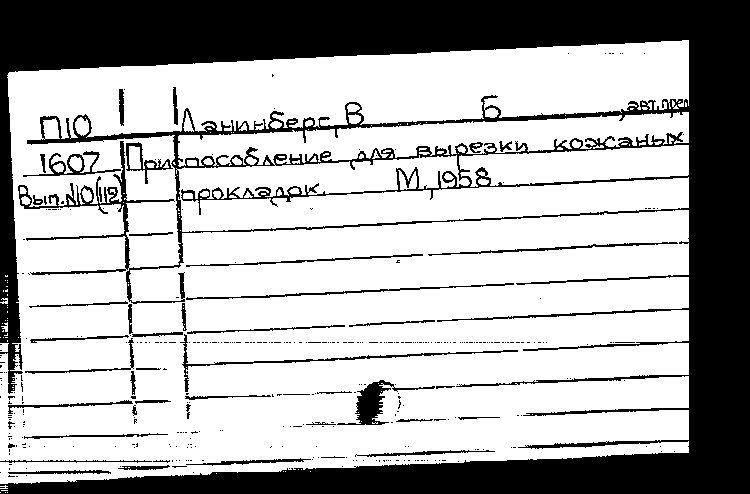 П10 Данинберг, В Б , авт. пред
1607 Приспособление для вырезки кожаных
Вып.№10(112) прокладок. М., 1958.